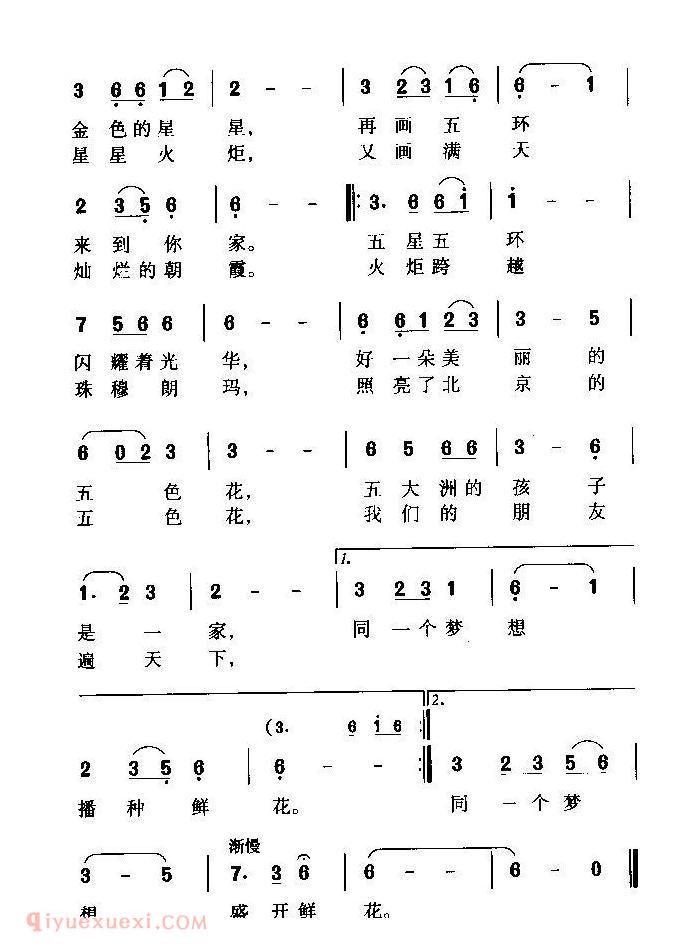 3 6 6 1 2 | 2 - - | 3 2 3 1 6 | 6 - 1
金色的星 星， 再画五 环
星星火 炬， 又画满 天
2 3 5 6 | 6 - - |: 3. 6 6 1 | 1 - -
来到你 家。 五星五 环
灿烂的朝 霞。 火炬跨 越
7 5 6 6 | 6 - - | 6 6 1 2 3 | 3 - 5
闪耀着光 华， 好一朵美 丽的
珠穆朗 玛， 照亮了北 京的
6 0 2 3 | 3 - - | 6 5 6 6 | 3 - 6
五色 花， 五大洲的 孩子
五色 花， 我们的 朋友
1.
1. 2 3 | 2 - - | 3 2 3 1 | 6 - 1
是一 家， 同一个梦 想
遍天 下，
2.
(3. 6 1 6 :|
2 3 5 6 | 6 - - :| 3 2 3 5 6
播种鲜 花。 同一个梦
渐慢
3 - 5 | 7. 3 6 | 6 - - | 6 - 0 ||
想 盛开鲜 花。
Qiyuexuexi.COM